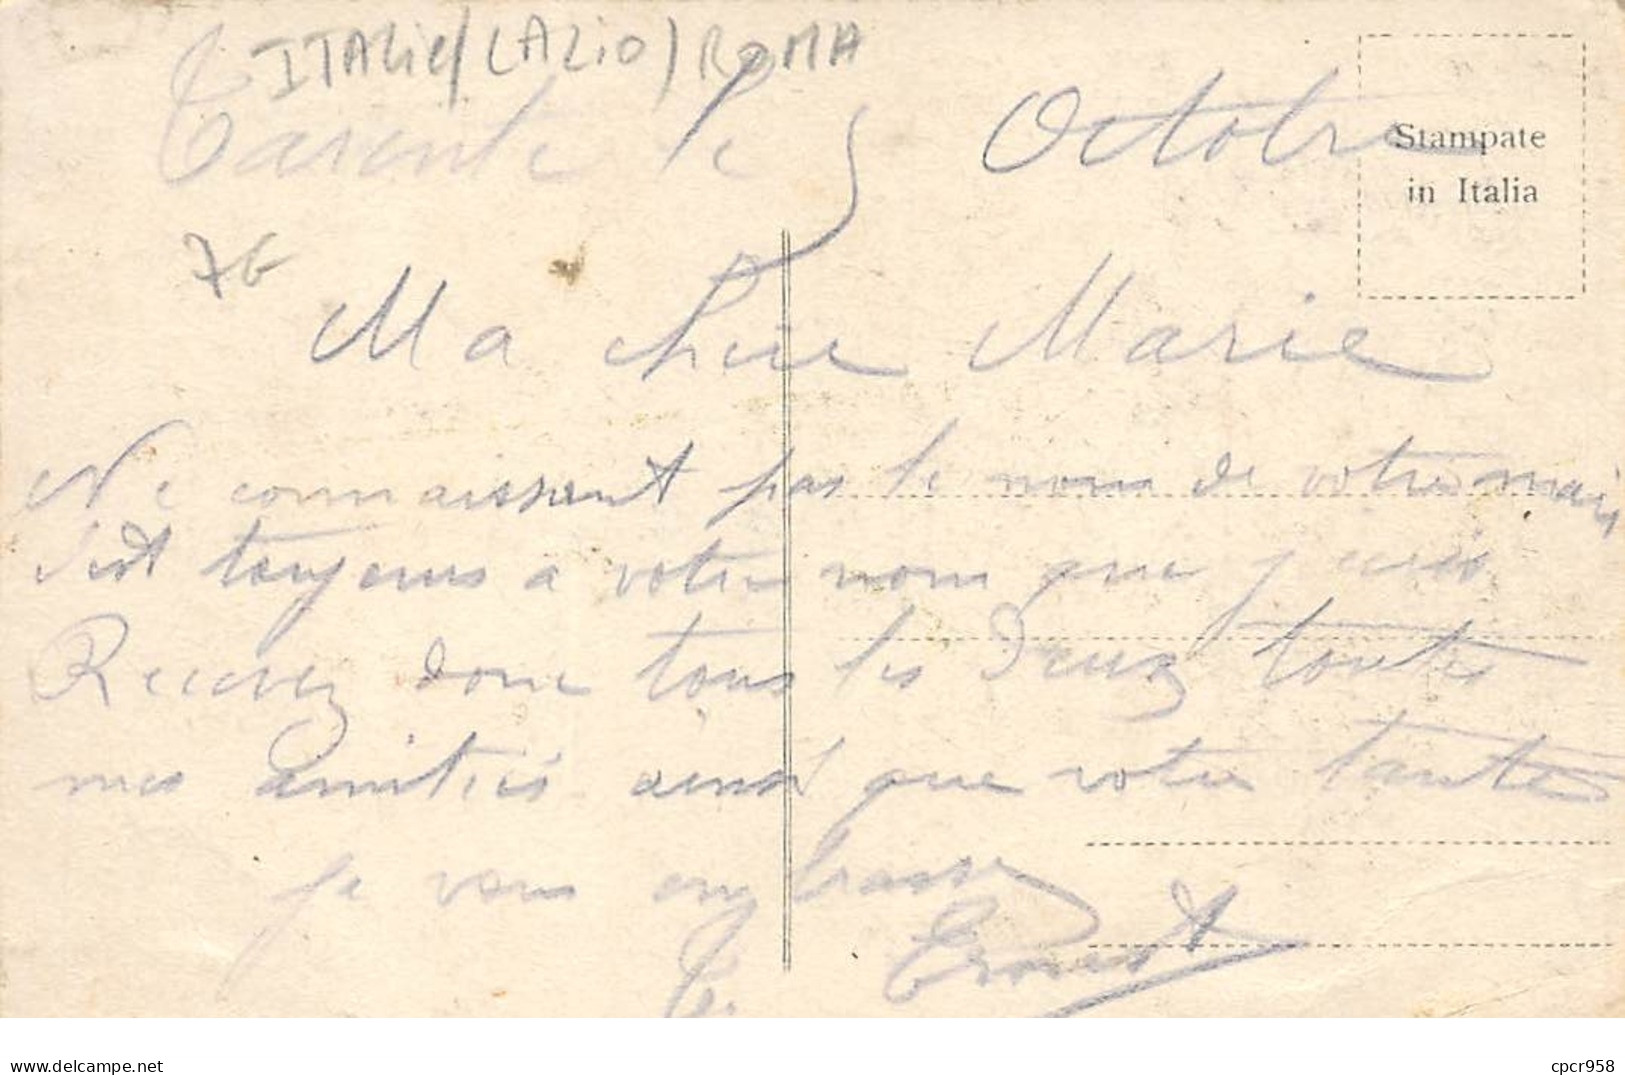 ITALIE/LAZIO/ROMA
Tarente le 5 Octobre
Stampate
in Italia
7€
Ma chère Marie
Ne connaissant pas le nom de votre mari
c'est toujours a votre nom que j'écris
Recevez donc tous les Deux toutes
mes amitiés ainsi que votre tante
je vous embrasse
E. Ernest
www.delcampe.net
cpcr958